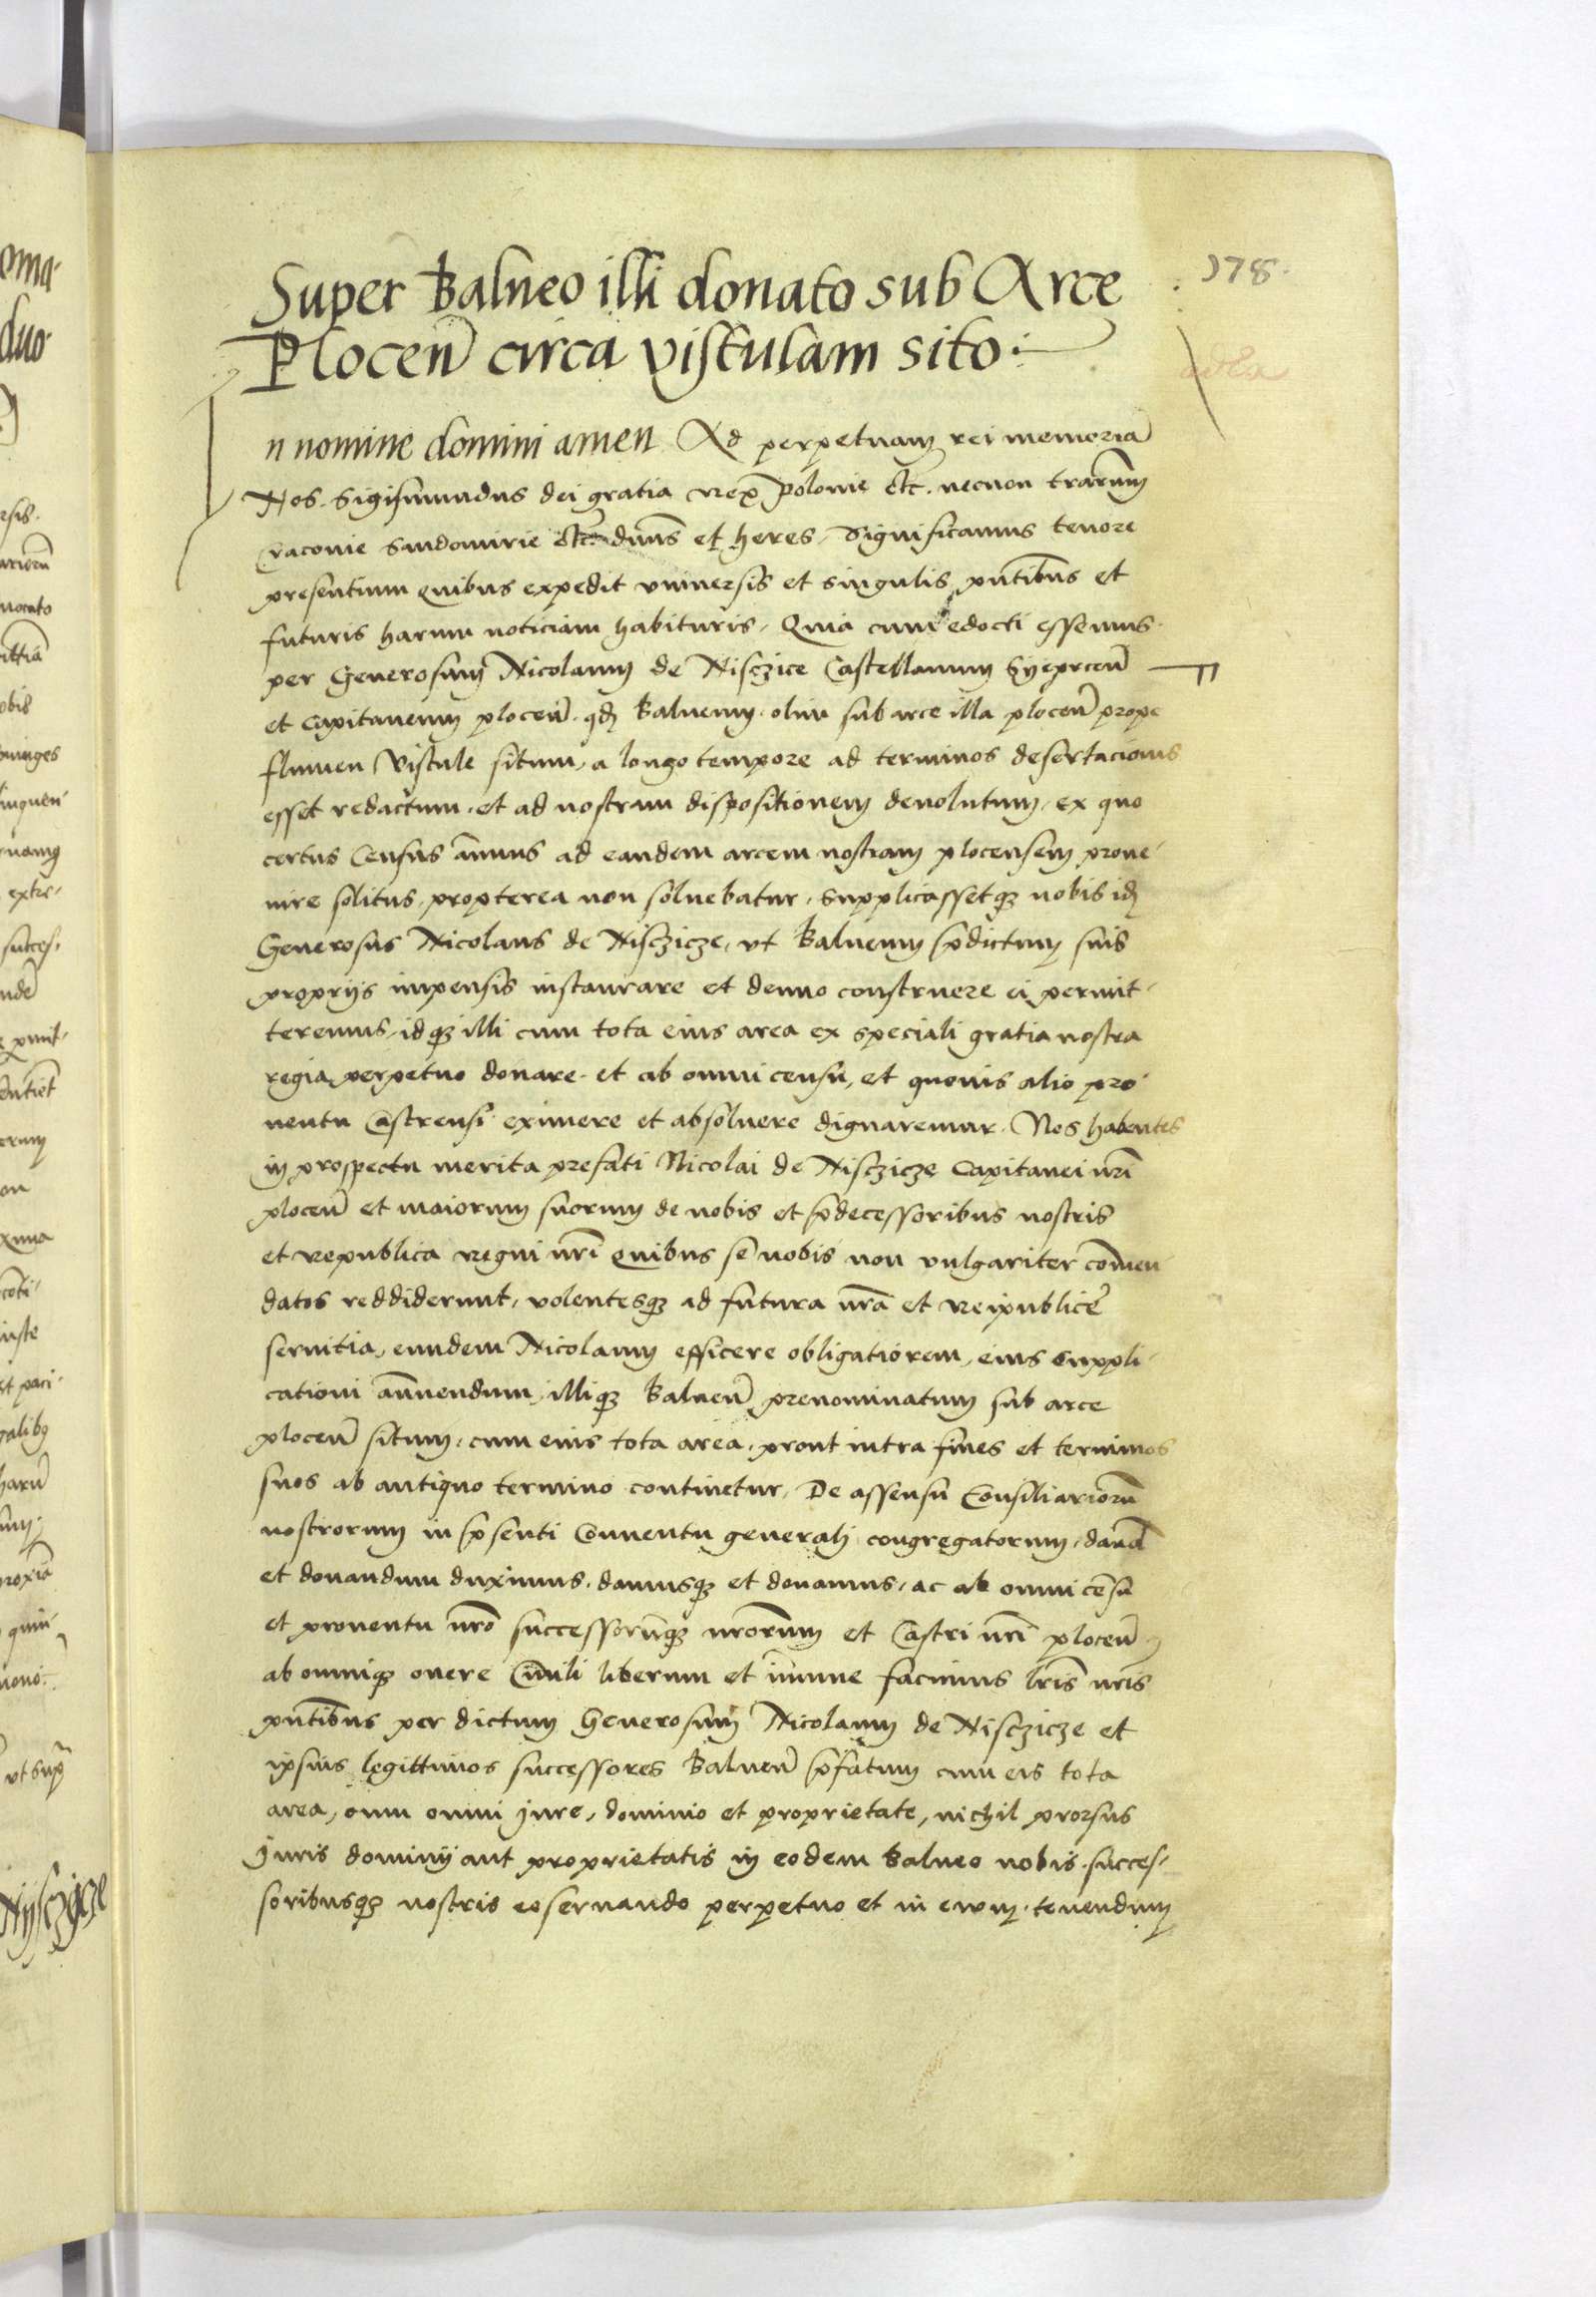 Super Balneo illi donato sub Arce
Plocen̄ circa vistulam sito :
178.
In nomine domini amen Ad perpetuam rei memoriā
Nos Sigismundus dei gratia Rex polonie etc. necnon trarum̄
Cracovie Sandomirie etc. dn̄us et heres, Significamus tenore
presentium Quibus expedit vniuersis et singulis pn̄tibus et
futuris harum noticiam habituris, Quia cum edocti essemus
per Generosum Nicolaum de Nisczice Castellanum Syeprcen̄
et capitaneum plocen̄. qd balneum olim sub arce illa plocen̄ prope
flumen Vistule situm, a longo tempore ad terminos desertacionis
esset redactum, et ad nostram dispositionem deuolutum, ex quo
certus Census ānuus ad eandem arcem nostram plocensem proue-
nire solitus, propterea non soluebatur, supplicassetq nobis idē
Generosus Nicolaus de Nisczicze, vt balneum p̄dictum suis
proprijs impensis instaurare et denuo construere ei permit-
teremus, idq illi cum tota eius area ex speciali gratia nostra
regia perpetuo donare. et ab omni censu, et quouis alio pro-
uentu Castrensi eximere et absoluere dignaremur. Nos habentes
in prospectu merita prefati Nicolai de Nisczicze Capitanei nr̄i
plocen̄ et maiorum suorum de nobis et p̄decessoribus nostris
et Republica Regni nr̄i Quibus se nobis non vulgariter com̄en
datos reddiderunt, volentesq ad futura nr̄a et Reipublice
seruitia, eundem Nicolaum efficere obligatiorem, eius suppli-
cationi an̄uendum, illiq balneū prenominatum sub arce
plocen̄ situm, cum eius tota area, prout intra fines et terminos
suos ab antiquo termino continetur, De assensu Consiliariorū
nostrorum in p̄senti Conuentu generali congregatorum, dand̄
et donandum duximus. damusq et donamus, ac ab omni cēsu
et prouentu nr̄o successorūq nr̄orum et Castri nr̄i plocen̄
ab omniq onere Ciuili liberum et im̄une facimus lr̄is nr̄is
pn̄tibus per dictum Generosum Nicolaum de Nisczicze et
ipsius legittimos successores balneū p̄fatum cum eis tota
area, cum omni Jure, dominio et proprietate, nichil prorsus
Juris dominij aut proprietatis in eodem balneo nobis succes-
soribusq nostris reseruando perpetuo et in ewm. tenendum